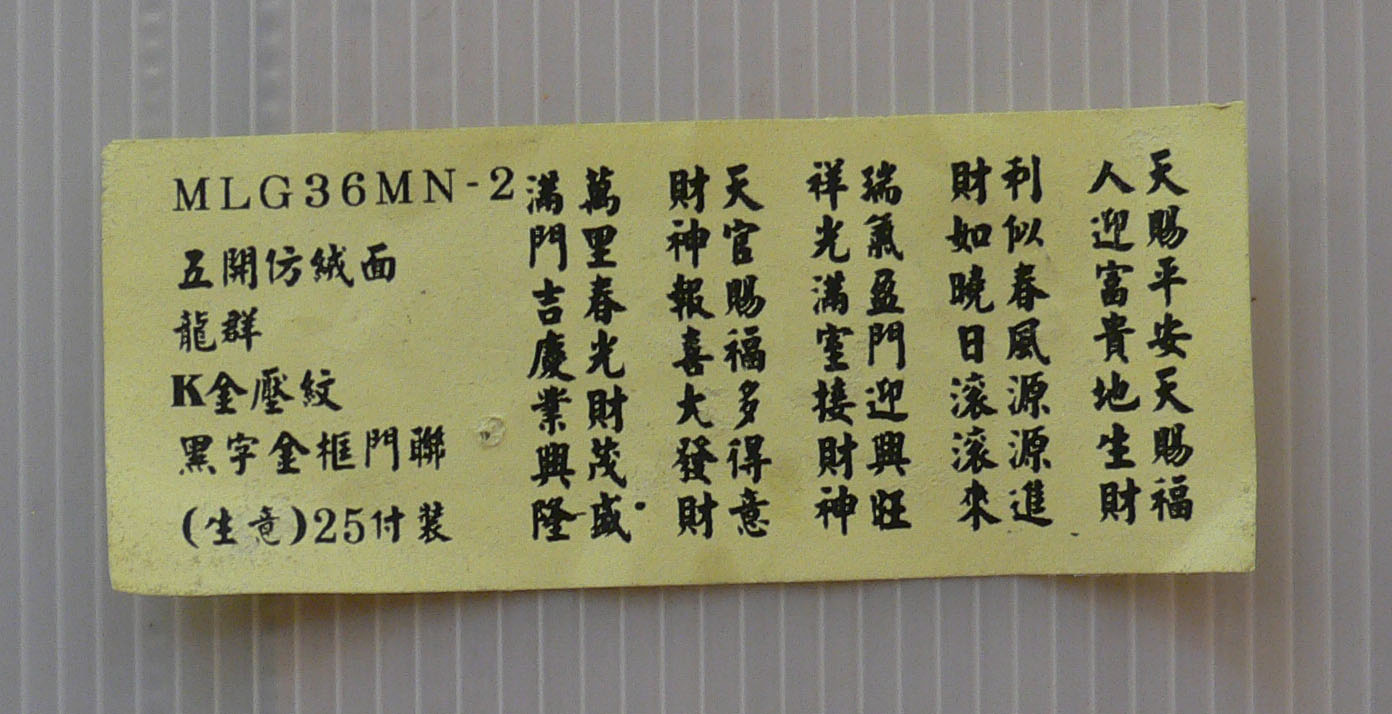 MLG36MN-2
五開仿絨面
龍群
K金壓紋
黑字金框門聯
(生意)25付裝
天賜平安天賜福
人迎富貴地生財
利似春風源源進
財如曉日滾滾來
瑞氣盈門迎興旺
祥光滿室接財神
天官賜福多得意
財神報喜大發財
萬里春光財茂盛
滿門吉慶業興隆